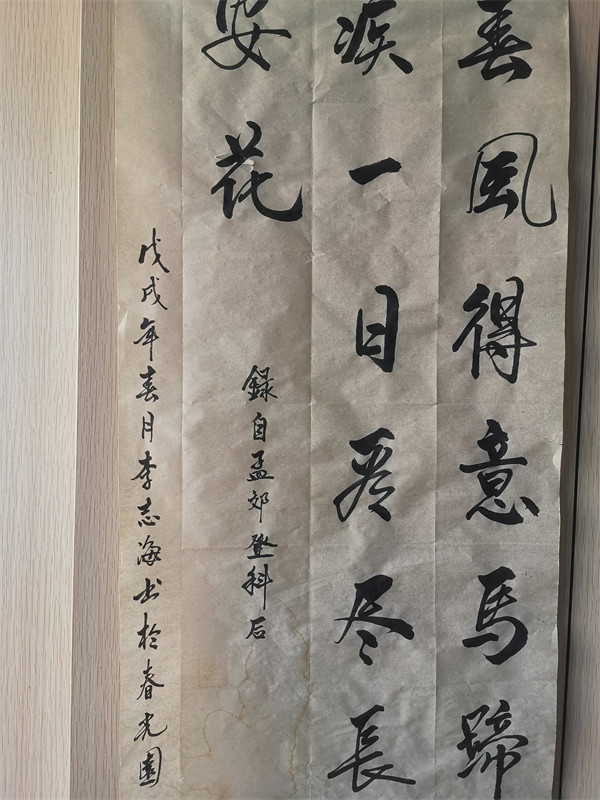 春風得意馬蹄
疾一日看尽長
安花
録自孟郊登科后
戊戌年春月李志海书於春光園